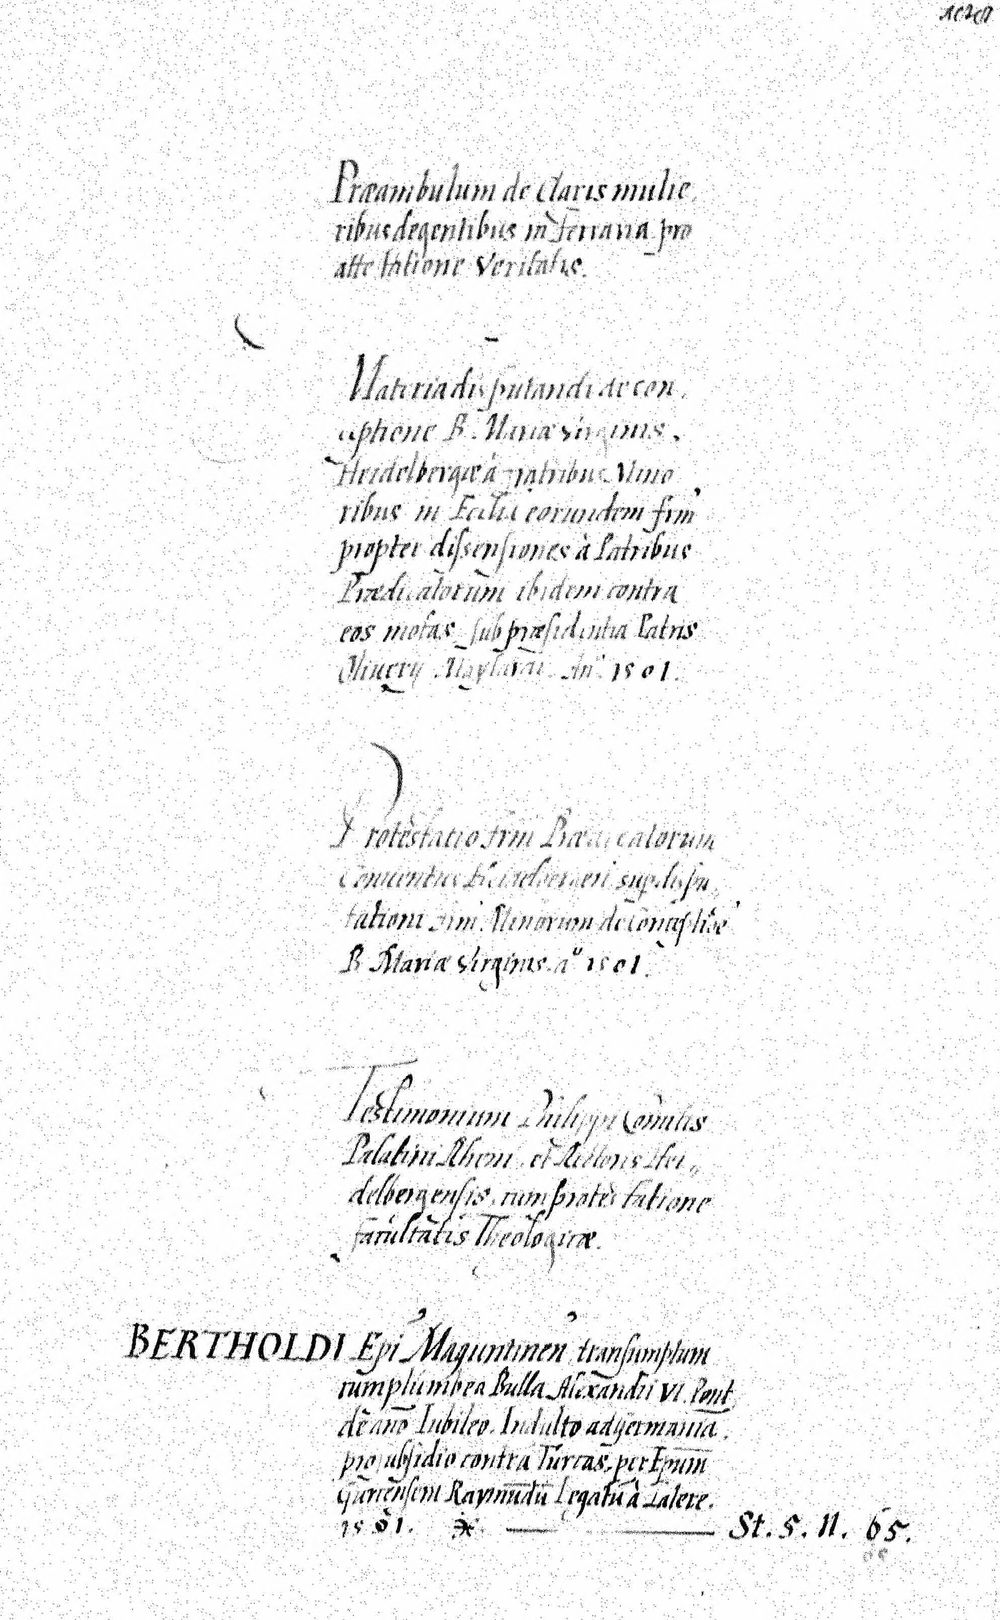 Præambulum de claris mulie,
ribus degentibus in Ferraria pro
attestatione Veritatis.
Materia disputandi de con,
ceptione B. Mariæ Virginis,
Heidelbergæ à Fratribus Mino
ribus in Ecclia eorundem frm̄
propter dissensiones à Patribus
Prædicatorum ibidem contra
eos motas, sub præsidentia Patris
An° 1501.
Protestatio frm̄ Prædicatorum
Conventus Heidelbergen sup dispu,
tationi frm̄ Minorum de
B. Mariæ Virginis. a° 1501.
Testimonium Philippi Comitis
Palatini Rheni, et Rectoris Hei,,
delbergensis, cum protestatione
facultatis Theologicæ.
BERTHOLDI Epi Maguntinen transsumptum
cum plumbea Bulla Alexandri VI. Pont
de año Iubileo, Indulto ad germaniā,
pro subsidio contra Turcas, per Epum
Gurcensem Raymundū Legatū à Latere.
1501. St. 5. N. 65.